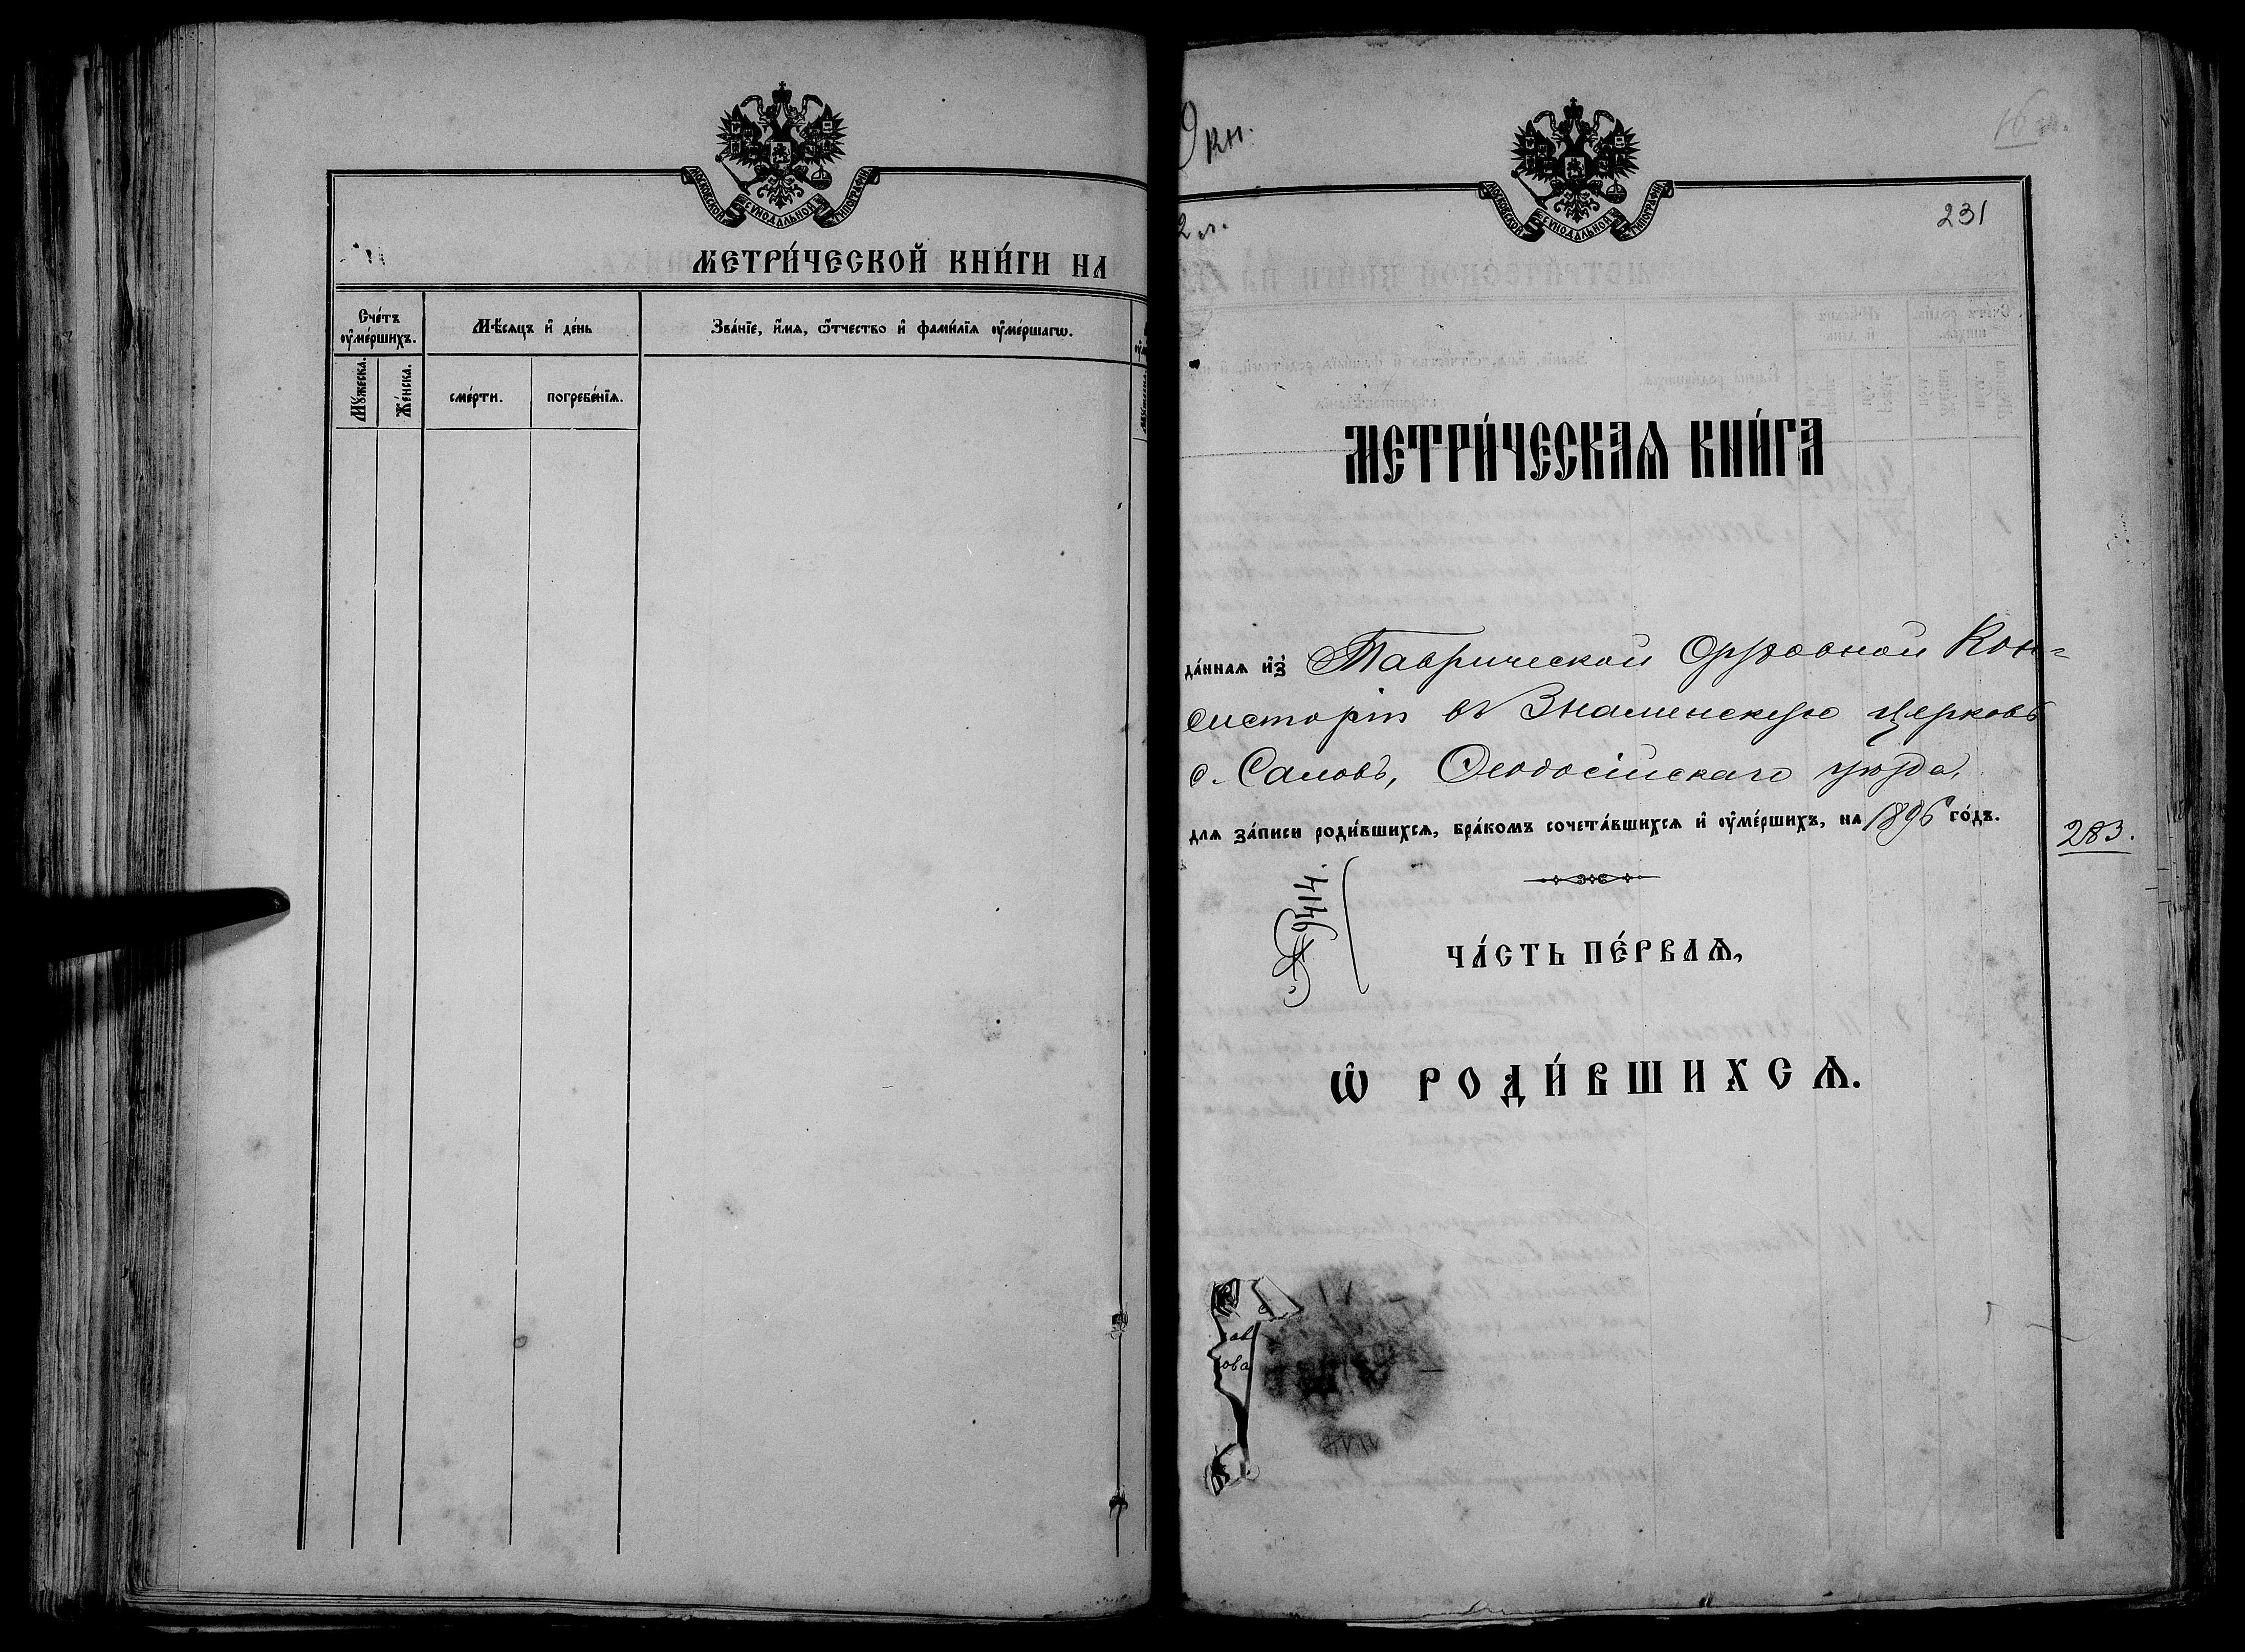 МОСКОВСКОЙ СѴНОДАЛЬНОЙ ТИПОГРАФІИ
МЕТРИ́ЧЕСКОЙ КНИ́ГИ НА
Сче́тъ ᲂу҆ме́ршихъ.
Мѣ́сяцъ и҆ де́нь
Зва́нїе, и҆́мѧ, ѻ҆́тчество и҆ фами́лїѧ ᲂу҆ме́ршагѡ.
Мꙋ́жеска.
Же́нска.
сме́рти.
погребе́нїѧ.
кн.
16
МОСКОВСКОЙ СѴНОДАЛЬНОЙ ТИПОГРАФІИ
231
2 л.
МЕТРИ́ЧЕСКАѦ КНИ́ГА
да́ннаѧ и҆з̾ Таврической Духовной Кон=
систоріи въ Знаменскую церковь
с. Саловъ, Ѳеодосійскаго уѣзда,
для за́писи роди́вшихсѧ, бра́комъ сочета́вшихсѧ и҆ ᲂу҆ме́ршихъ, на 1896 го́дъ.
283.
4146
ЧА́СТЬ ПЕ́РВАѦ,
Ѡ҆ РОДИ́ВШИХСѦ.